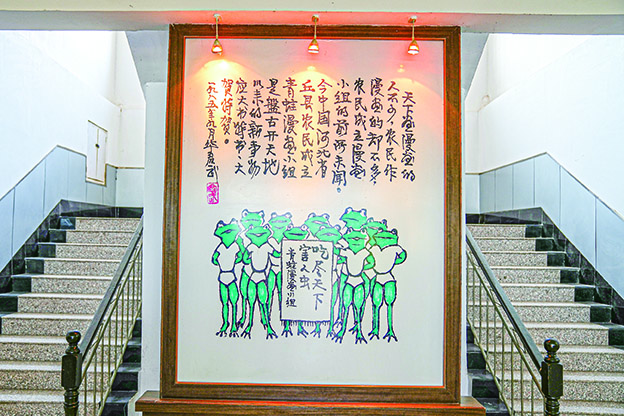 天下画漫画的
人不少，农民作
漫画的却不多，
农民成立漫画
小组的前所未闻。
今中国河北省
丘县农民成立
青蛙漫画小组
是盘古开天地
以来的新事物
应大书特书，大
贺特贺。
年九月 华君武
吃尽天下
害人虫
青蛙漫画小组